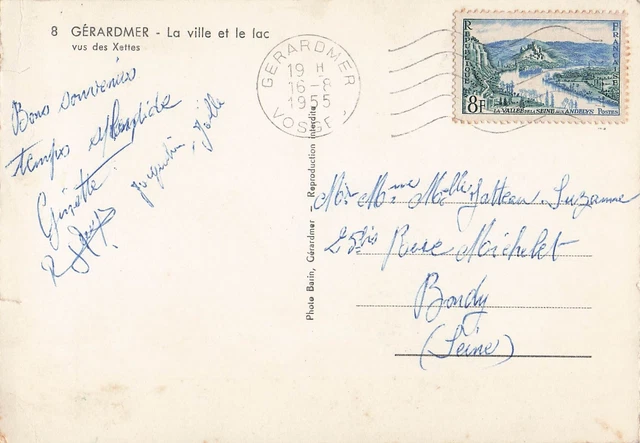 8 GÉRARDMER - La ville et le lac
vus des Xettes
Bons souvenirs
temps splendide
Ginette
Jacqueline, Joëlle
Photo Bazin, Gérardmer Reproduction interdite
GERARDMER
19 H
16-8
1955
VOSGES
RÉPUBLIQUE FRANÇAISE
8F
LA VALLÉE DE LA SEINE AUX ANDELYS POSTES
Mr Mme Melle Suzanne
Rue Michelet
Bondy
(Seine)